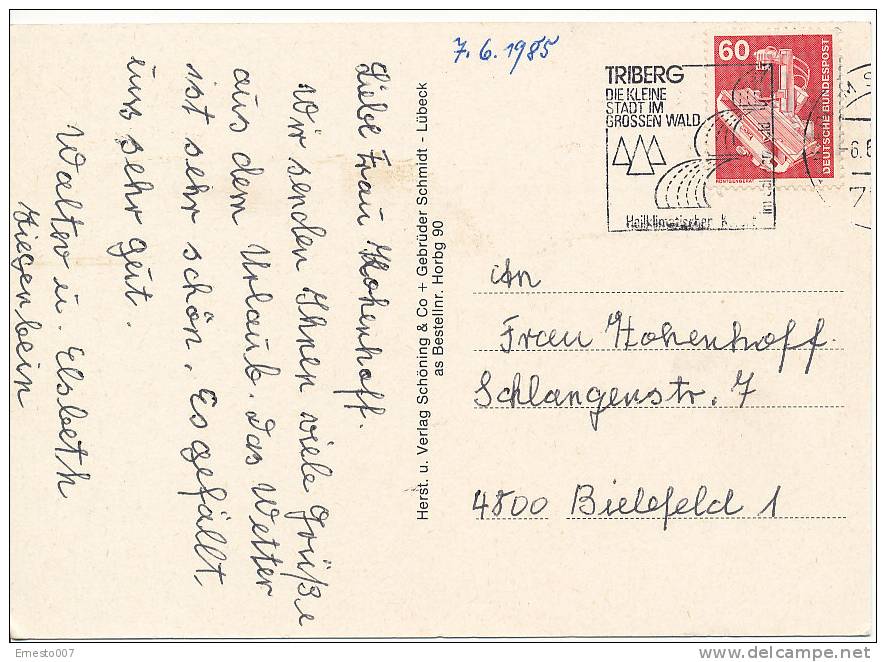 7.6.1985
Liebe Frau Hohenhoff.
Wir senden Ihnen viele Grüße
aus dem Urlaub. Das Wetter
ist sehr schön. Es gefällt
uns sehr gut.
Walter u. Elsbeth
Ziegenbein
Herst. u. Verlag Schöning & Co + Gebrüder Schmidt - Lübeck
as Bestellnr. Horbg 90
TRIBERG
DIE KLEINE
STADT IM
GROSSEN WALD
Heilklimatischer
60
DEUTSCHE BUNDESPOST
RÖNTGENGERÄT
An
Frau Hohenhoff.
Schlangenstr. 7
4800 Bielefeld 1
Ernesto007
www.delcampe.net